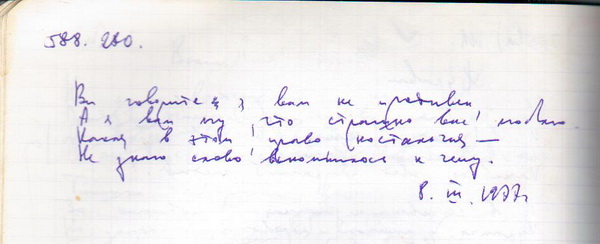 588. 280.
Вы говорите, я вам не противен
А я вам лгу, что страшно вас люблю.
Какая в этом, право, ностальгия —
Не знаю слово вспомнилося к чему.
8. III. 1977г